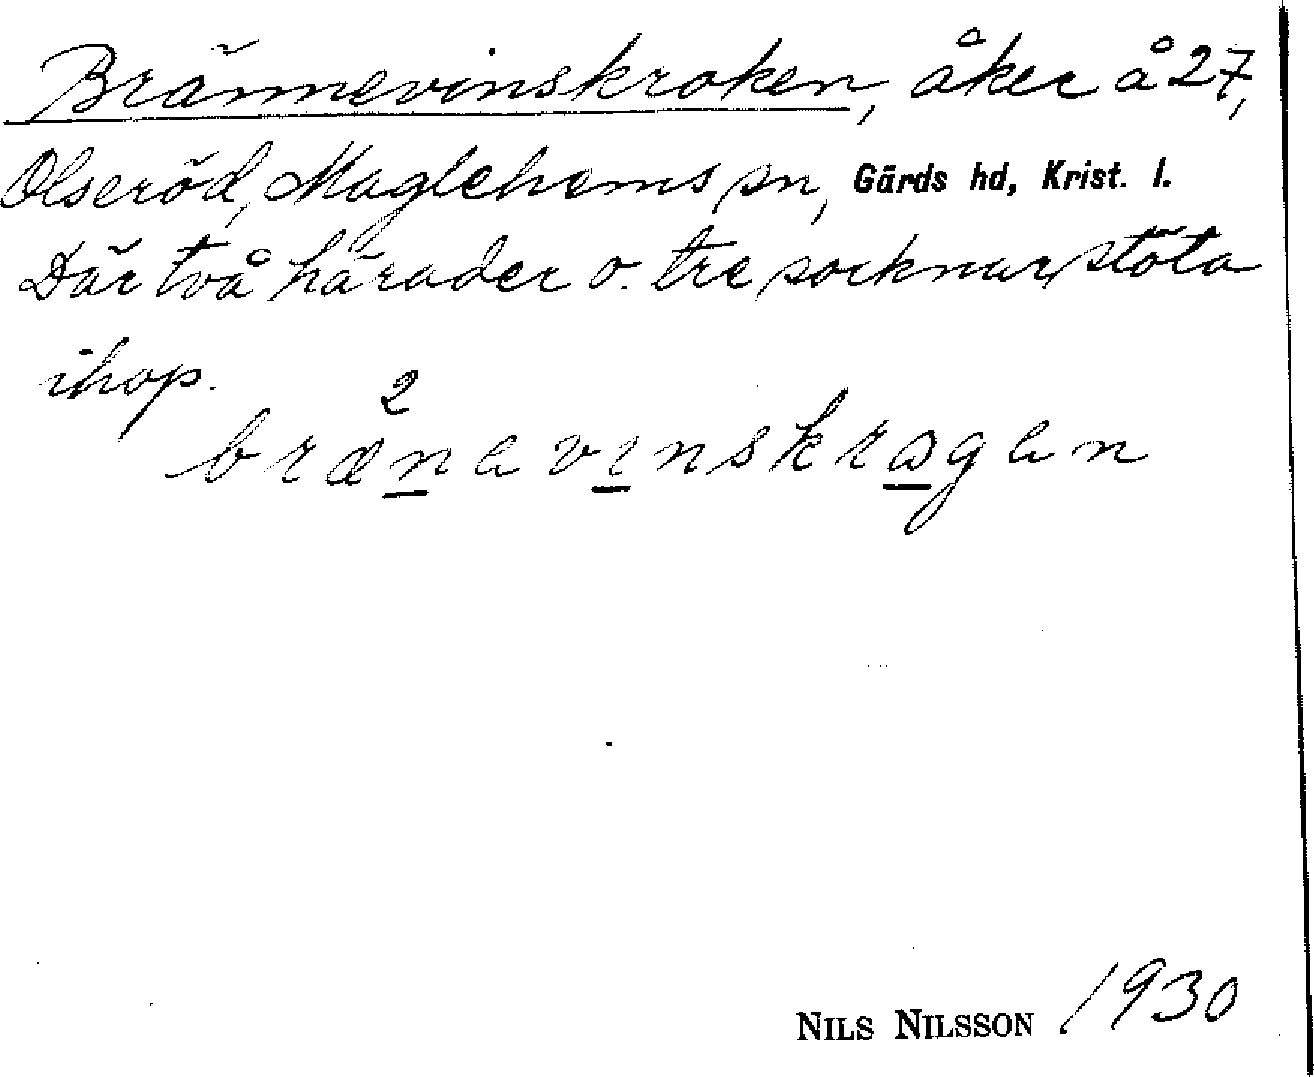 Brännevinskroken, åker å 27,
Olseröd, Maglehems sn, Gärds hd, Krist. l.
Där två härader o. tre socknar stöta
ihop.
2
brænavinskrogan
NILS NILSSON 1930